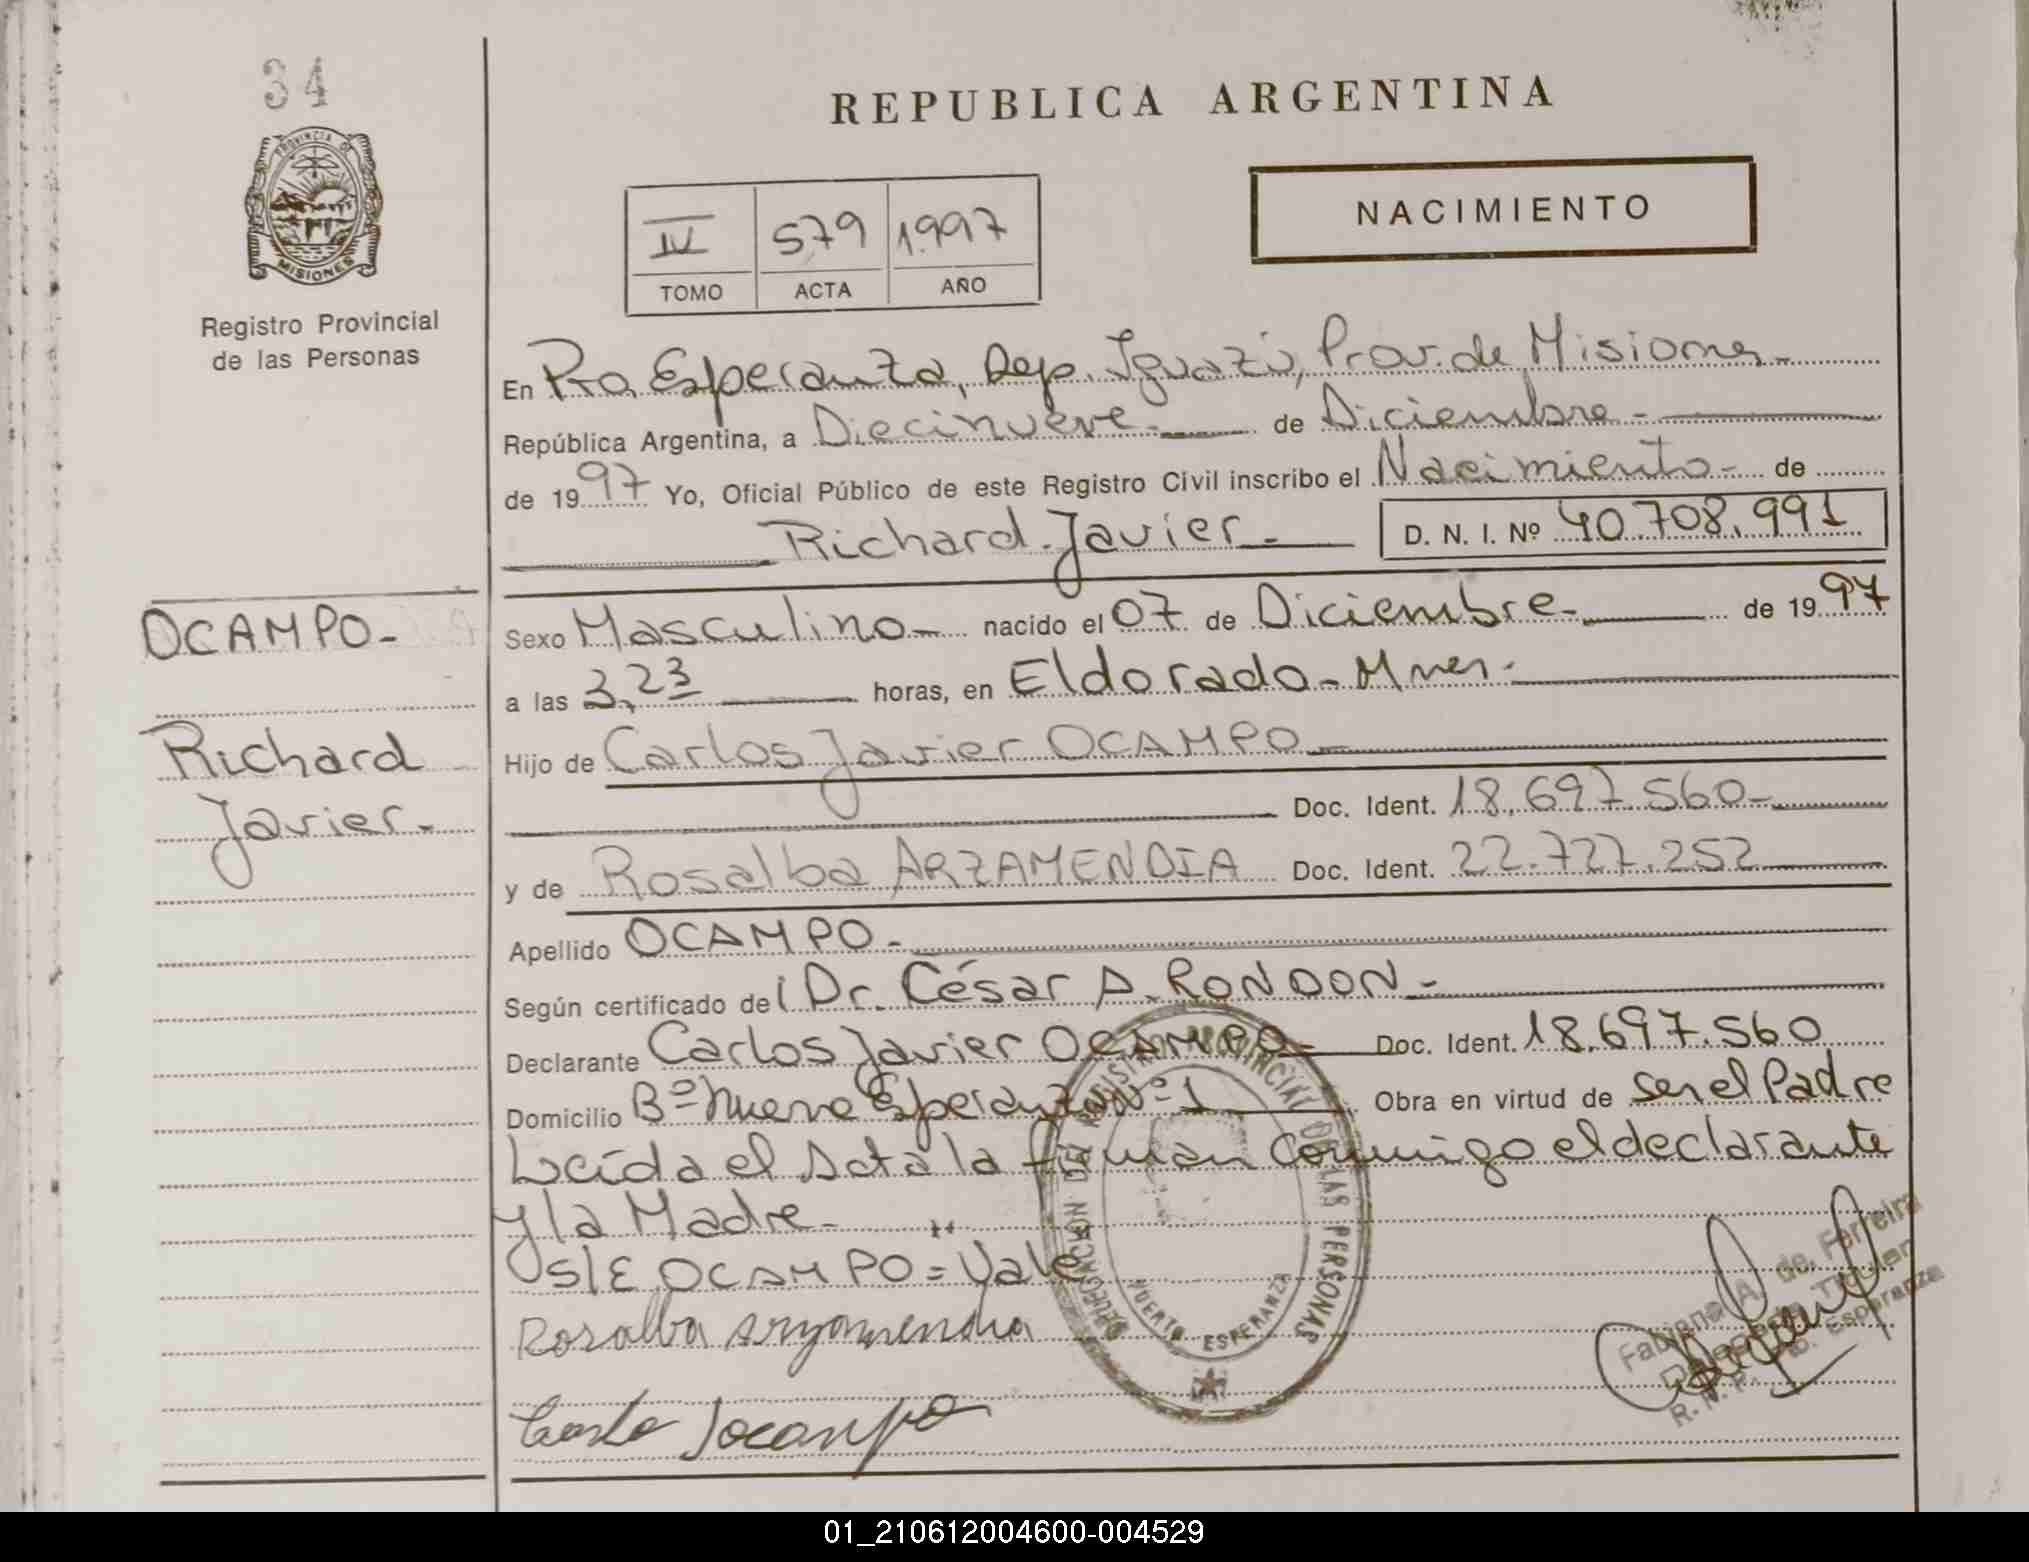 34
REPUBLICA ARGENTINA
PROVINCIA DE
MISIONES
Registro Provincial
de las Personas
IV 579 1.997
TOMO ACTA AÑO
NACIMIENTO
En Pto. Esperanza, Dep. Iguazú, Prov. de Misiones-
República Argentina, a Diecinueve- de Diciembre-
de 1997 Yo, Oficial Público de este Registro Civil inscribo el Nacimiento- de
Richard Javier- D. N. I. Nº 40.708.991
OCAMPO-
Richard
Javier-
Sexo Masculino- nacido el 07 de Diciembre- de 1997
a las 3,23 horas, en Eldorado-Mnes-
Hijo de Carlos Javier OCAMPO-
Doc. Ident. 18.697.560-
y de Rosalba ARZAMENDIA Doc. Ident. 22.727.252
Apellido OCAMPO-
Según certificado del Dr. César A. RONDON-
Declarante Carlos Javier OCAMPO- Doc. Ident. 18.697.560
Domicilio Bº Nueva Esperanza Nº 1 Obra en virtud de ser el Padre
Leída el Acta la firman conmigo el declarante
y la Madre-
S/E OCAMPO = Vale
Rosalba Arzamendia
Carlo J ocampo
DELEGACION DEL REGISTRO PROVINCIAL DE LAS PERSONAS
PUERTO ESPERANZA
Fabiana A. de Ferreira
Delegada Titular
R. N. P. Pto. Esperanza
01_210612004600-004529